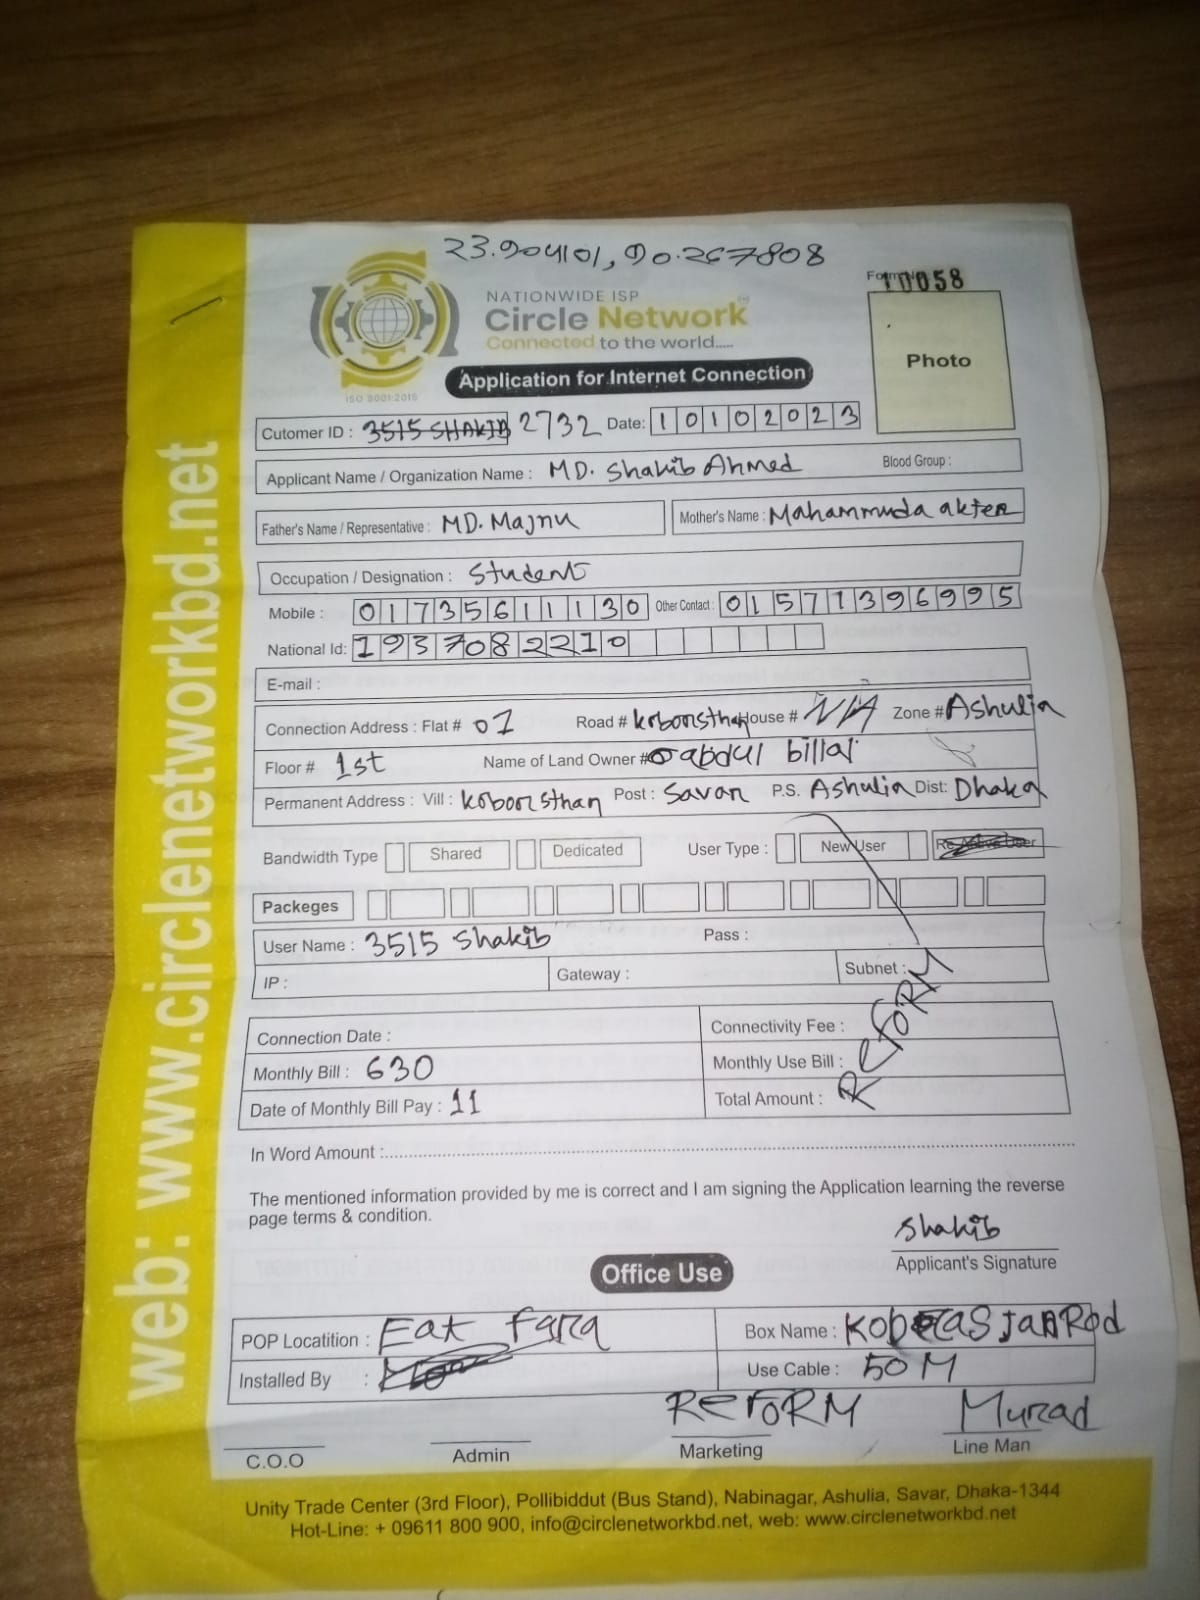 23.904101, 90.267808
Form No 10058
NATIONWIDE ISP
Circle Network
Connected to the world.....
ISO 9001:2015
Application for Internet Connection
Photo
Cutomer ID : 3515 SHAKIB 2732 Date: 10102023
Applicant Name / Organization Name : MD. Shakib Ahmed Blood Group :
Father's Name / Representative : MD. Majnu Mother's Name : Mahammuda akter
Occupation / Designation : Student
Mobile : 01735611130 Other Contact : 01571396995
National Id: 1937082210
E-mail :
Connection Address : Flat # 01 Road # koborsthan House # N/A Zone # Ashulia
Floor # 1st Name of Land Owner # abdul billal
Permanent Address : Vill : koborsthan Post : Savar P.S. Ashulia Dist: Dhaka
Bandwidth Type Shared Dedicated User Type : New User Re-Active User
Packeges
User Name : 3515 Shakib Pass :
IP : Gateway : Subnet :
Connection Date : Connectivity Fee :
Monthly Bill : 630 Monthly Use Bill :
Date of Monthly Bill Pay : 11 Total Amount :
ReFORM
In Word Amount :
The mentioned information provided by me is correct and I am signing the Application learning the reverse
page terms & condition.
Shakib
Applicant's Signature
Office Use
POP Locatition : Box Name :
Installed By : Use Cable : 50M
ReFORM Murad
C.O.O Admin Marketing Line Man
Unity Trade Center (3rd Floor), Pollibiddut (Bus Stand), Nabinagar, Ashulia, Savar, Dhaka-1344
Hot-Line: + 09611 800 900, info@circlenetworkbd.net, web: www.circlenetworkbd.net
web: www.circlenetworkbd.net